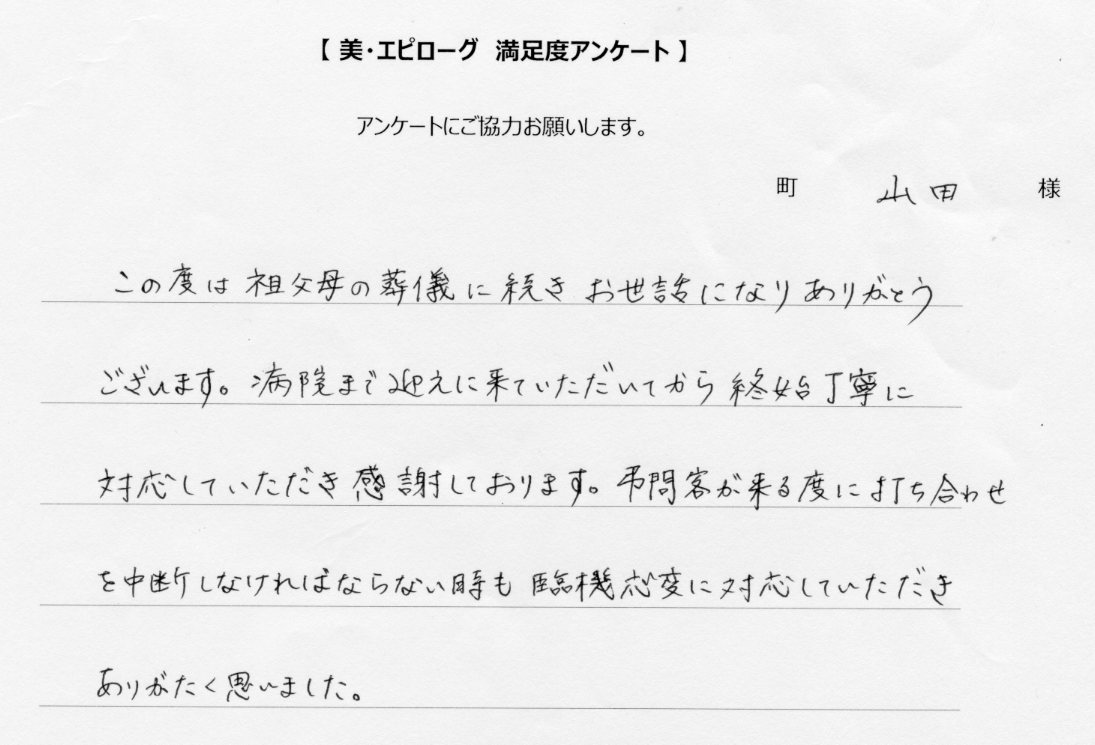 【 美・エピローグ 満足度アンケート 】
アンケートにご協力お願いします。
町 山田 様
この度は祖父母の葬儀に続きお世話になりありがとう
ございます。病院まで迎えに来ていただいてから終始丁寧に
対応していただき感謝しております。弔問客が来る度に打ち合わせ
を中断しなければならない時も臨機応変に対応していただき
ありがたく思いました。